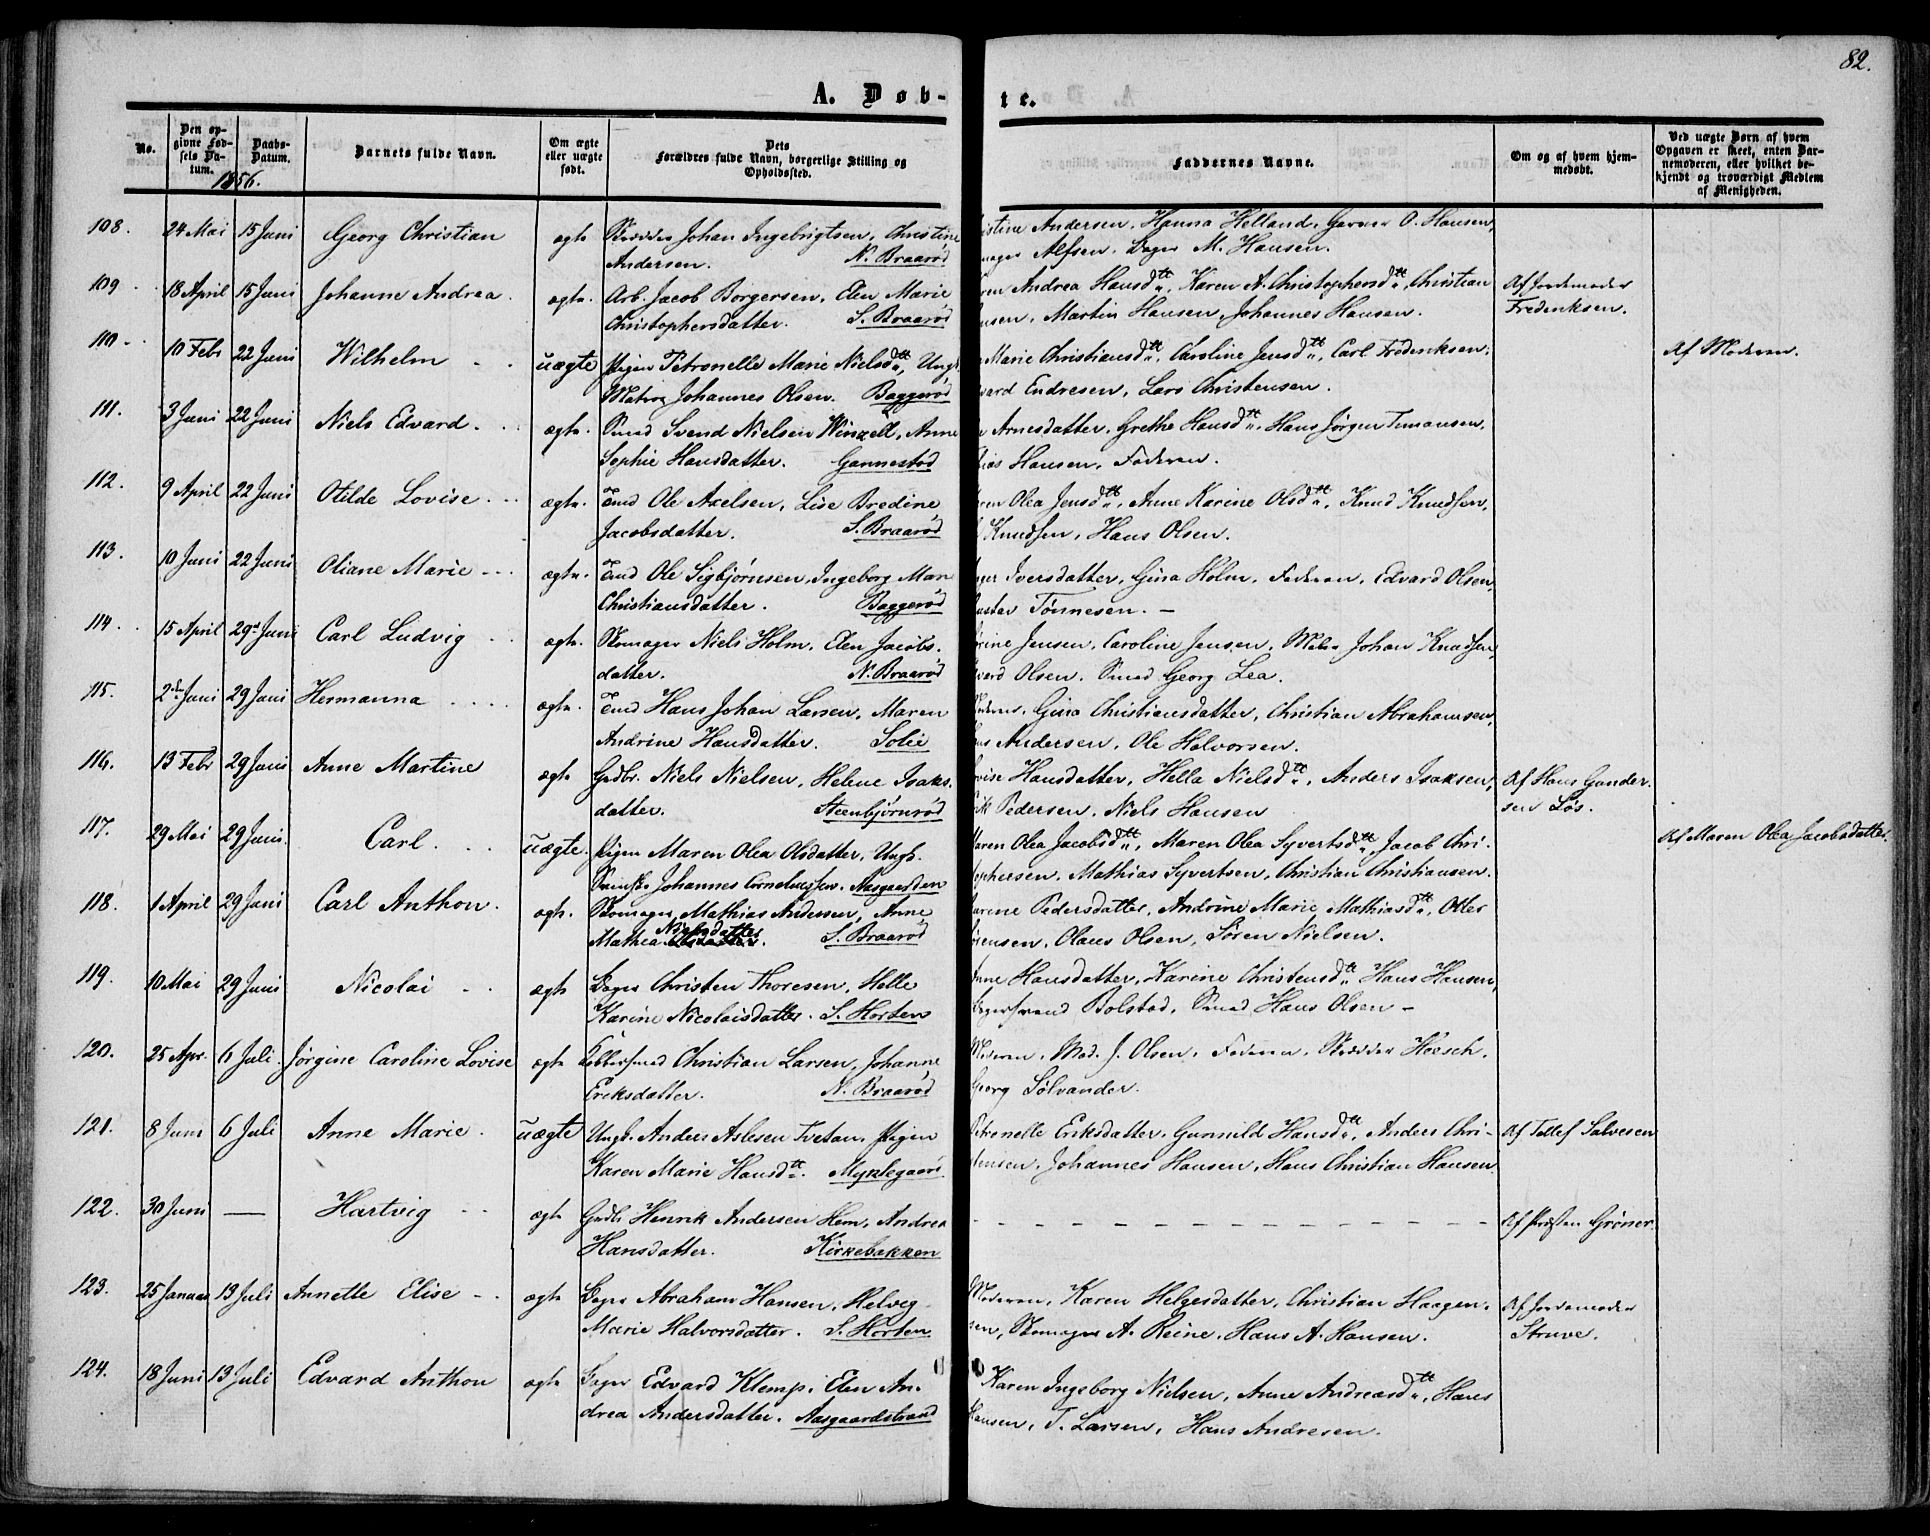 82.
A. Døb-
te.
No.
Den op-
givne Fød-
sels Da-
tum.
Daabs-
Datum.
Barnets fulde Navn.
Om ægte
eller uægte
født.
Dets
Forældres fulde Navn, borgerlige Stilling og
Opholdssted.
Faddernes Navne.
Om og af hvem hjem-
medøbt.
Ved uægte Børn af hvem
Opgaven er skeet, enten Bar-
nemoderen, eller hvilket be-
kjendt og troværdigt Medlem
af Menigheden.
1856.
108. 24 Mai 15 Juni Georg Christian ægte Skrædder Johan Ingebrigtsen, Christine
Andersen. N. Braarød
istine Andersen, Hanna Helland, Garver O. Hansen,
mager Alfsen, Bager M. Hansen.
109 18 April 15 Juni Johanne Andrea. ægte. Arb. Jacob Borgersen, Elen Marie
Christophersdatter. S. Braarød
ren Andrea Hansdtt, Karen A. Christophersdtt, Christian
ansen, Martin Hansen, Johannes Hansen.
Af Jordemoder
Fredriksen.
110 10 Febr 22 Juni Wilhelm uægte Pigen Petronelle Marie Nielsdtt, Ungk.
Matros Johannes Olsen. Baggerød
Marie Christiansdtt, Caroline Jensdtt, Carl Fredriksen,
vard Endresen, Lars Christensen.
Af Moderen.
111. 3 Juni 22 Juni Niels Edvard. ægte. Smed Svend Nielsen Winzell, Anne
Sophie Hansdatter. Gannestad
e Arnesdatter, Grethe Hansdtt, Hans Jørgen Timansen,
tias Hansen, Faderen.
112. 9 April 22 Juni Otilde Lovise ægte. Tømd Ole Axelsen, Lise Bredine
Jacobsdatter. S. Braarød
ren Olea Jensdtt, Anne Karine Olsdtt, Knud Knudsen,
Knudsen, Hans Olsen.
113. 10 Juni 22 Juni Oliane Marie ægte. Tømd Ole Sigbjørnsen, Ingeborg Marie
Christiansdatter. Baggerød
nger Iversdatter, Gina Holm, Faderen, Edvard Olsen,
ustav Tønnesen. —
114. 15 April 29 Juni Carl Ludvig ægte. Skomager Niels Holm, Elen Jacobs-
datter. N. Braarød
rine Jensen, Caroline Jensen, Maler Johan Knudsen,
vard Olsen, Smed Georg Lea.
115. 2den Juni 29 Juni Hermanna ægte. Tømd Hans Johan Larsen, Maren
Andrine Hansdatter. Solie
Moderen, Gina Christiansdatter, Christian Abrahamsen,
ns Andersen, Ole Halvorsen.
116. 13 Febr 29 Juni Anne Martine ægte Grdbr. Niels Nielsen, Helene Isaks-
datter. Steenbjørnrød
ovise Hansdatter, Hella Nielsdtt, Anders Isaksen,
rik Pedersen, Niels Hansen
Af Hans Gunder-
sen Løs.
117. 29 Mai 29 Juni Carl. uægte. Pigen Maren Olea Olsdatter, Ungk.
Johannes Corneliussen. Aasgaarden
Maren Olea Jacobsdtt, Maren Olea Syvertsdtt, Jacob Chri-
stophersen, Mathias Syvertsen, Christian Christiansen.
Af Maren Olea Jacobsdatter.
118. 1 April 29 Juni Carl Anthon. ægte. Skomager Mathias Andersen, Anne
Mathea Nielsdatter. S. Braarød
arene Pedersdatter, Andrine Marie Mathiasdtt, Otter
ørensen, Olaus Olsen, Søren Nielsen.
119. 10 Mai 29 Juni Nicolai ægte Bager Christen Thoresen, Helle
Karine Nicolaisdatter. S. Horten
Anne Hansdatter, Karine Christensdtt, Hans Hansen,
Bagersvend Bolstad, Smed Hans Olsen —
120. 25 Apr. 6 Juli. Jørgine Caroline Lovise ægte Kobbersmed Christian Larsen, Johanne
Eriksdatter. N. Braarød
Moderen, Mad. J. Olsen, Faderen, Skrædder Heesch,
Georg Sølvander.
121. 8 Juni 6 Juli Anne Marie. uægte Ungk. Anders Aslesen Tvetan, Pigen
Karen Marie Hansdtt. Myklegaard
Petronelle Eriksdatter, Gunnild Hansdtt, Anders Chri-
stensen, Johannes Hansen, Hans Christian Hansen
Af Tollef Salvesen
122. 30 Juni — Hartvig ægte Grdbr Henrik Andersen Hem, Andrea
Hansdatter. Kirkebakken
Af Præsten Grøner.
123. 25 Januar 13 Juli Annette Elise ægte Bager Abraham Hansen, Helvig
Marie Halvorsdatter. S. Horten
Moderen, Karen Helgesdatter, Christian Haagen-
sen, Skomager A. Reine, Hans A. Hansen.
Af Jordemoder
Struve.
124. 18 Juni 13 Juli Edvard Anthon ægte Bager Edvard Klemp, Elen An-
drea Andersdatter. Aasgaardstrand
Karen Ingeborg Nielsen, Anne Andreasdtt, Hans
Hansen, T. Larsen, Hans Andresen.